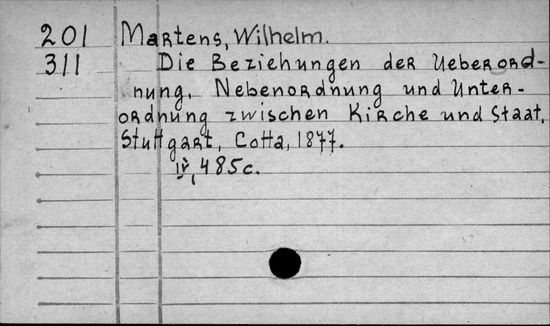 201 Martens, Wilhelm.
311 Die Beziehungen der Ueberord-
nung, Nebenordnung und Unter-
ordnung zwischen Kirche und Staat,
Stuttgart, Cotta, 1877.
IV, 485c.